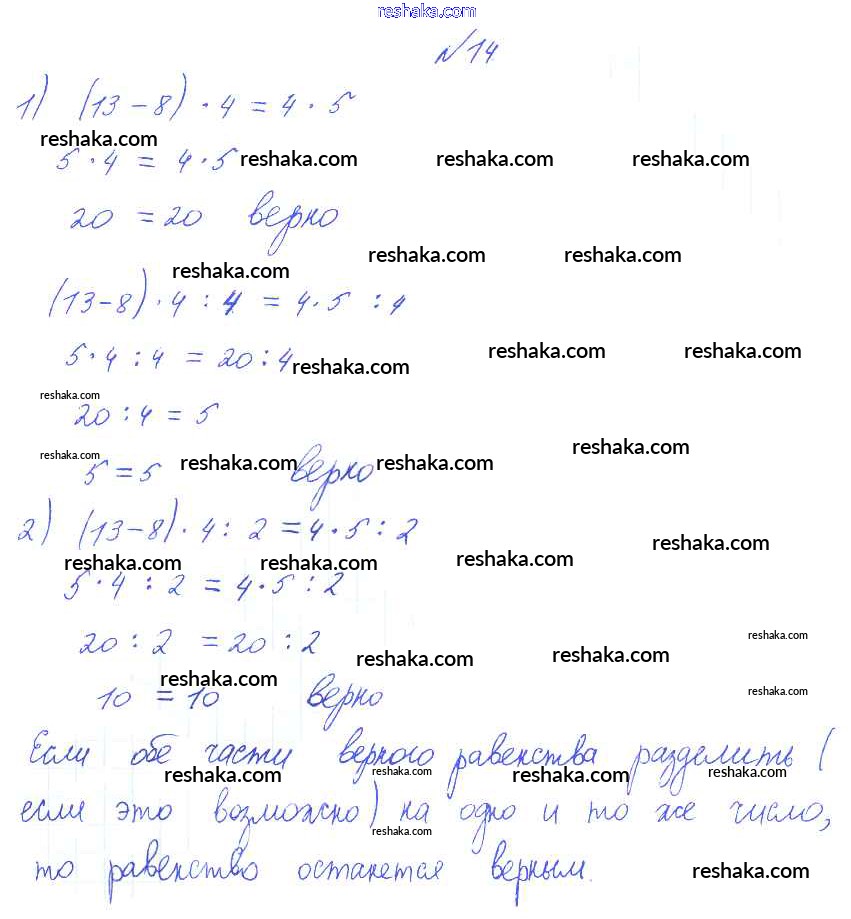 reshaka.com
№14
1) (13-8)·4=4·5
reshaka.com
5·4=4·5 reshaka.com reshaka.com reshaka.com
20=20 верно
reshaka.com reshaka.com
reshaka.com
(13-8)·4:4=4·5:4
5·4:4=20:4 reshaka.com reshaka.com reshaka.com
reshaka.com
20:4=5
reshaka.com
5=5 reshaka.com верно reshaka.com reshaka.com
2) (13-8)·4:2=4·5:2
reshaka.com reshaka.com reshaka.com reshaka.com
5·4:2=4·5:2
20:2=20:2 reshaka.com
reshaka.com reshaka.com
reshaka.com reshaka.com
10=10 верно
Если обе части верного равенства разделить (
reshaka.com reshaka.com reshaka.com reshaka.com
если это возможно) на одно и то же число,
reshaka.com
то равенство останется верным. reshaka.com